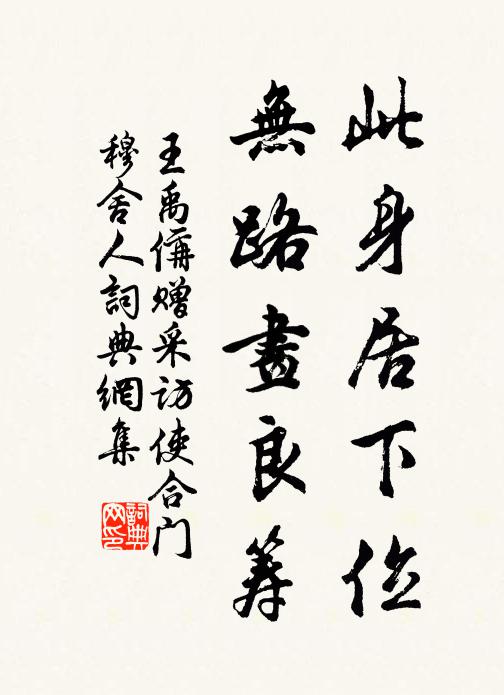 此身居下位
無路畫良籌
王禹偁贈采訪使合門
穆舍人詞典網集
詞典網印